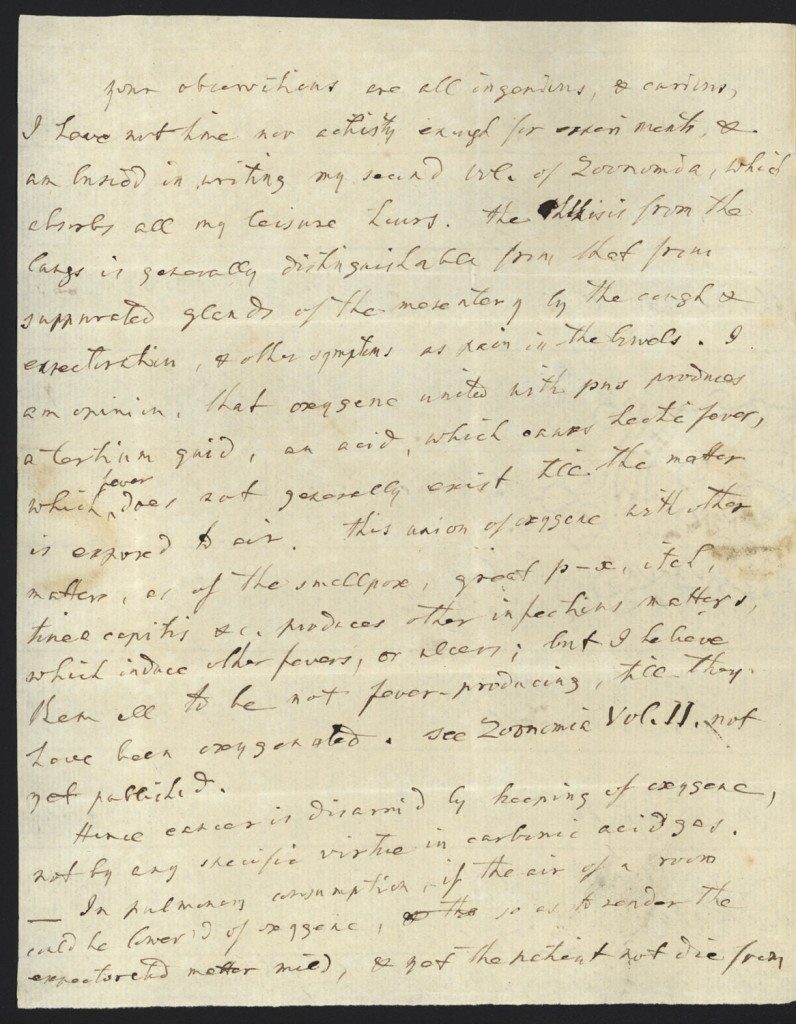 your observations are all ingenious, & curious,
I have not time nor activity enough for experiments, &
am busied in writing my second vol. of Zoonomia, which
absorbs all my leisure hours. The Phthisis from the
lungs is generally distinguishable from that from
suppurated glands of the mesentery by the cough &
expectoration, & other symptoms as pain in the bowels. I
am opinion, that oxygene united with pus produces
a tertium quid, an acid, which causes hectic fever,
which fever does not generally exist till the matter
is exposed to air. This union of oxygene with other
matters, as of the smallpox, great p-x, itch,
tinea capitis &c. produces other infectious matters,
which induce other fevers, or ulcers; but I believe
them all to be not fever-producing, till they
have been oxygenated. see Zoonomia Vol. II. not
yet published.
Hence cancer is disarm'd by keeping of oxygene,
not by any specific virtue in carbonic acid gas.
— In pulmonary consumption, if the air of a room
could be lower'd of oxygene, & tho so as to render the
expectorated matter mild, & yet the patient not die from